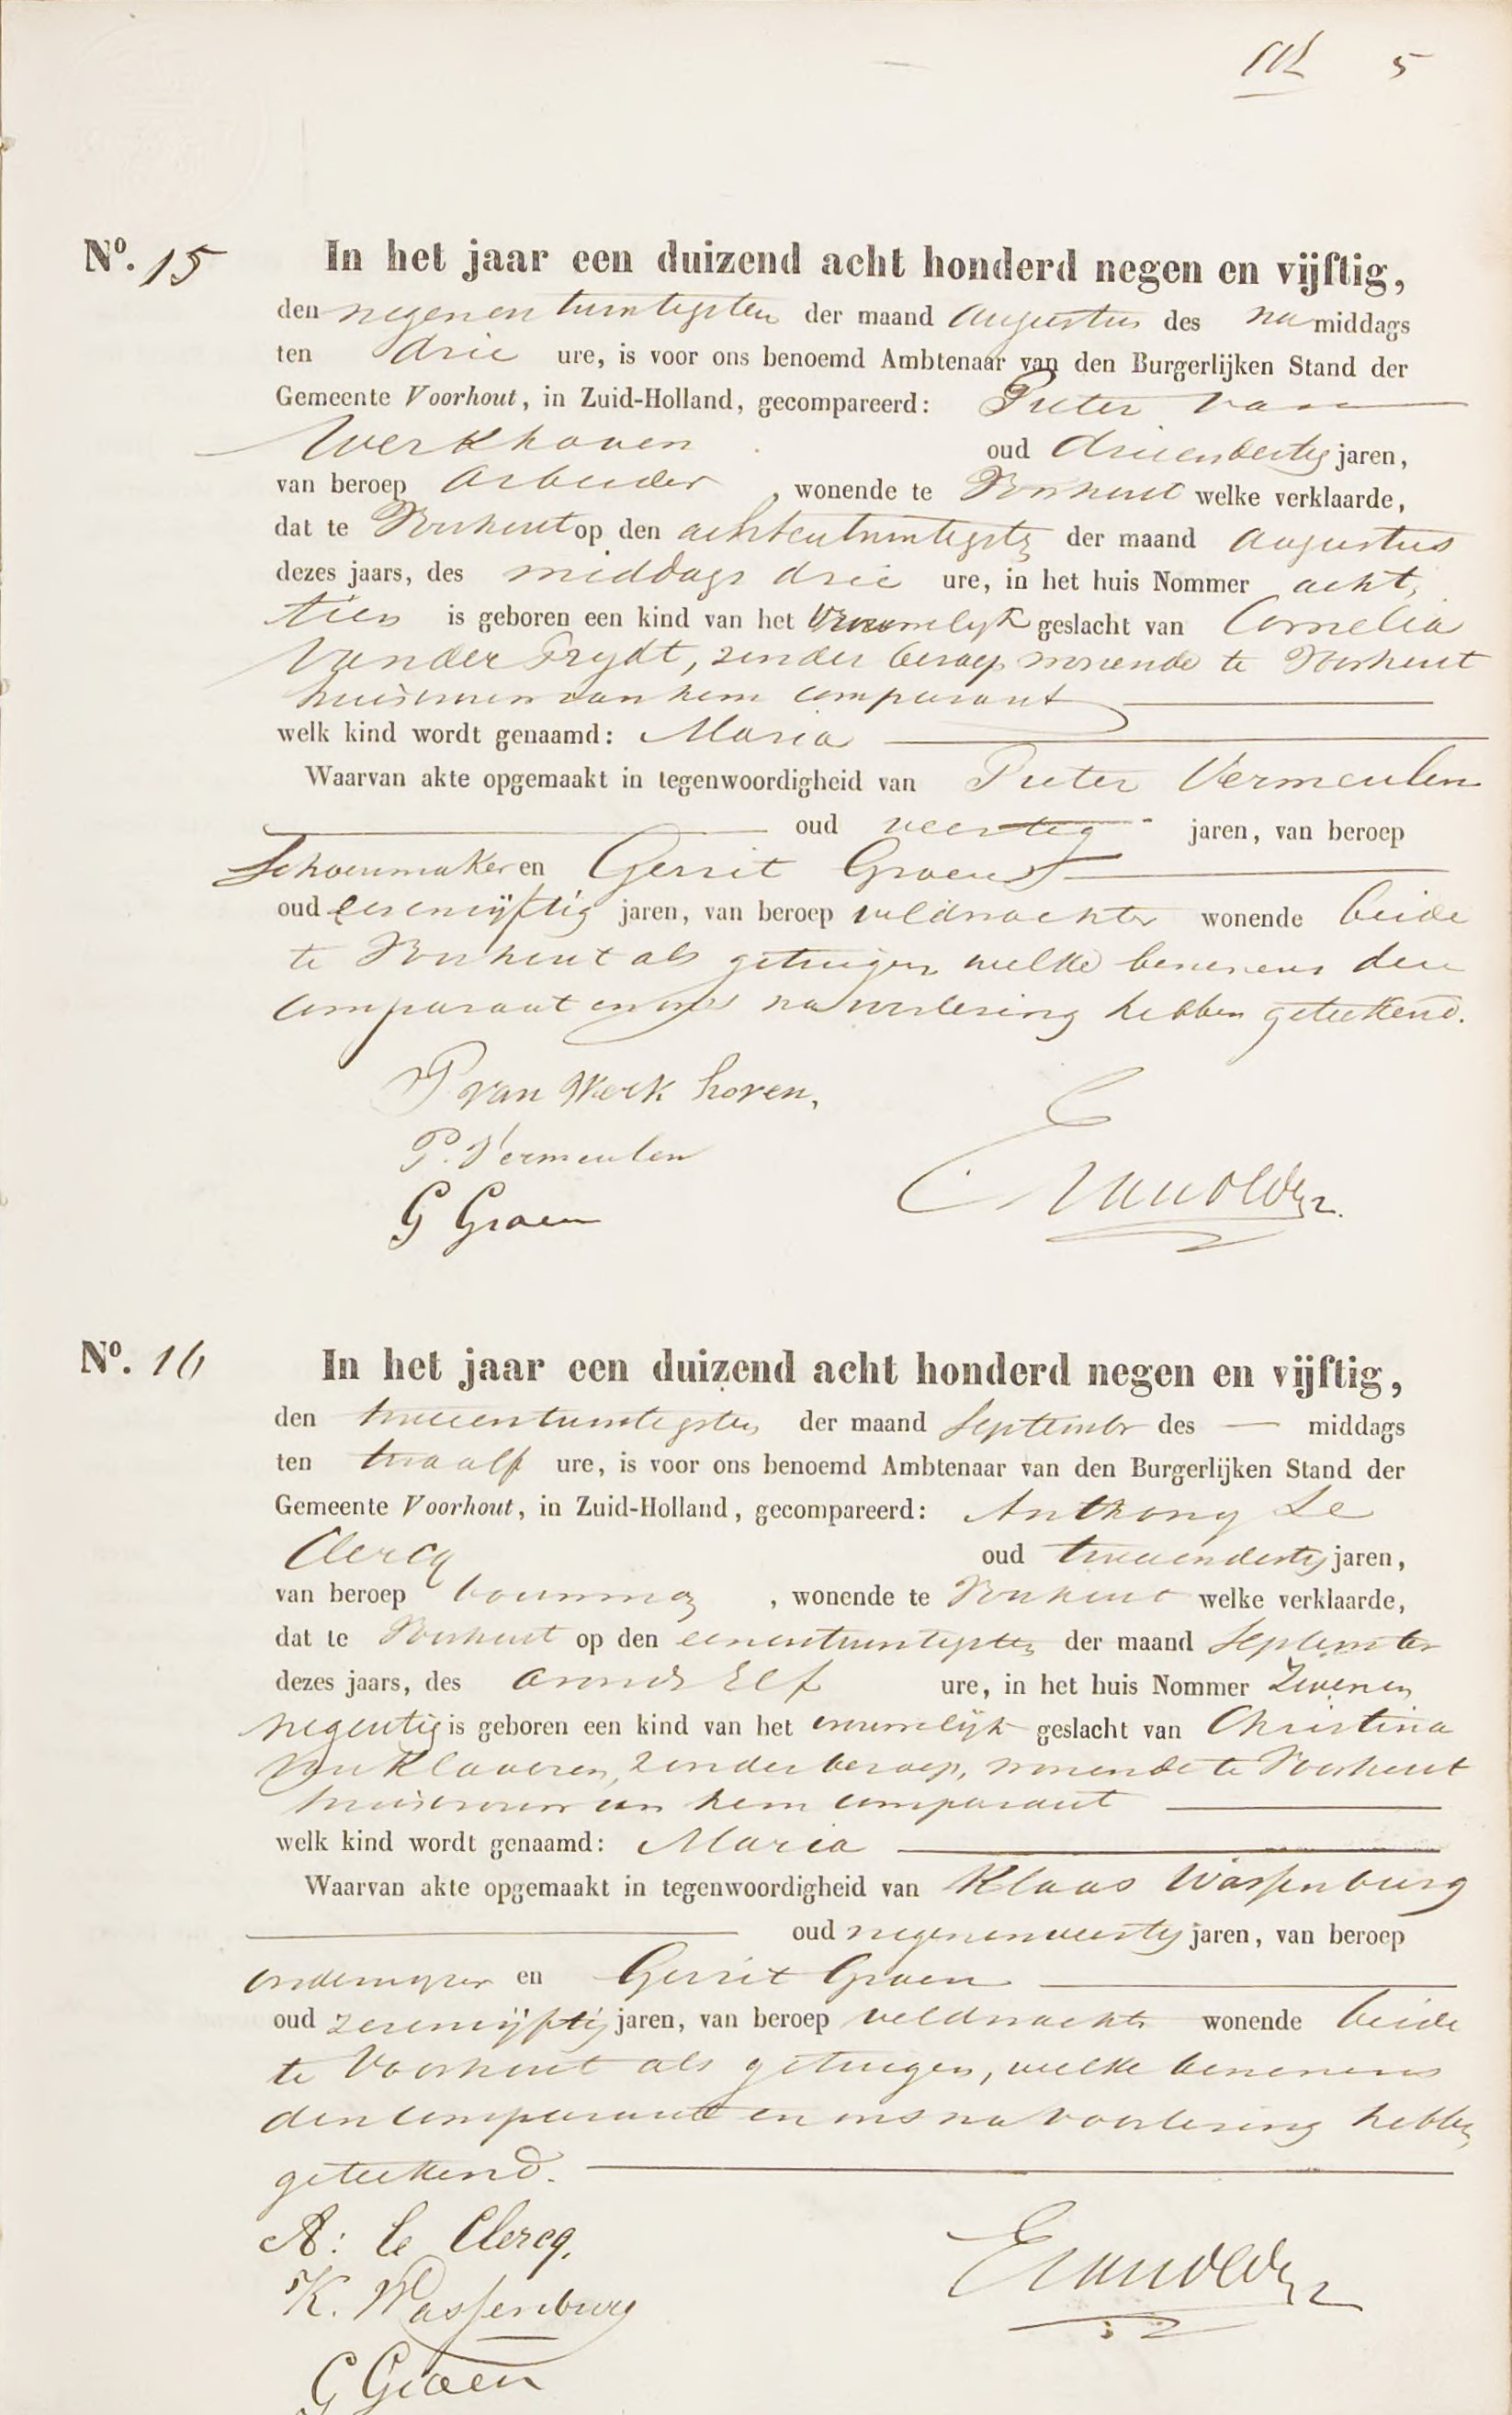 5
Nº. 15 In het jaar een duizend acht honderd negen en vijftig,
den negenentwintigsten der maand Augustus des na middags
ten drie ure, is voor ons benoemd Ambtenaar van den Burgerlijken Stand der
Gemeente Voorhout, in Zuid-Holland, gecompareerd: Pieter van
Werkhoven oud drieendertig jaren,
van beroep arbeider, wonende te Voorhout welke verklaarde,
dat te Voorhout op den achtentwintigsten der maand Augustus
dezes jaars, des middags drie ure, in het huis Nommer acht
tien is geboren een kind van het vrouwelijk geslacht van Cornelia
van der , zonder beroep wonende te Voorhout
huisvrouw van hem comparant
welk kind wordt genaamd: Maria
Waarvan akte opgemaakt in tegenwoordigheid van Pieter Vermeulen
oud veertig jaren, van beroep
Schoenmaker en Gerrit Groen
oud zevenvijftig jaren, van beroep veldwachter wonende beide
te Voorhout als getuigen welke benevens den
comparant en ons na voorlezing hebben geteekend.
P van Werkhoven,
P. Vermeulen
G Groen
Nº. 16 In het jaar een duizend acht honderd negen en vijftig,
den tweeentwintigsten der maand September des — middags
ten twaalf ure, is voor ons benoemd Ambtenaar van den Burgerlijken Stand der
Gemeente Voorhout, in Zuid-Holland, gecompareerd: Anthony Le
Clercq oud tweeendertig jaren,
van beroep bouwman, wonende te Voorhout welke verklaarde,
dat te Voorhout op den eenentwintigsten der maand September
dezes jaars, des avonds Elf ure, in het huis Nommer Zevenen
negentig is geboren een kind van het vrouwelijk geslacht van Christina
van Klaveren, zonder beroep, wonende te Voorhout
huisvrouw van hem comparant
welk kind wordt genaamd: Maria
Waarvan akte opgemaakt in tegenwoordigheid van Klaas Wassenburg
oud negenenveertig jaren, van beroep
onderwyzer en Gerrit Groen
oud zevenvijftig jaren, van beroep veldwachter wonende beide
te Voorhout als getuigen, welke benevens
den comparant en ons na voorlezing hebben
geteekend.
A: le Clercq.
K. Wassenburg
G Groen